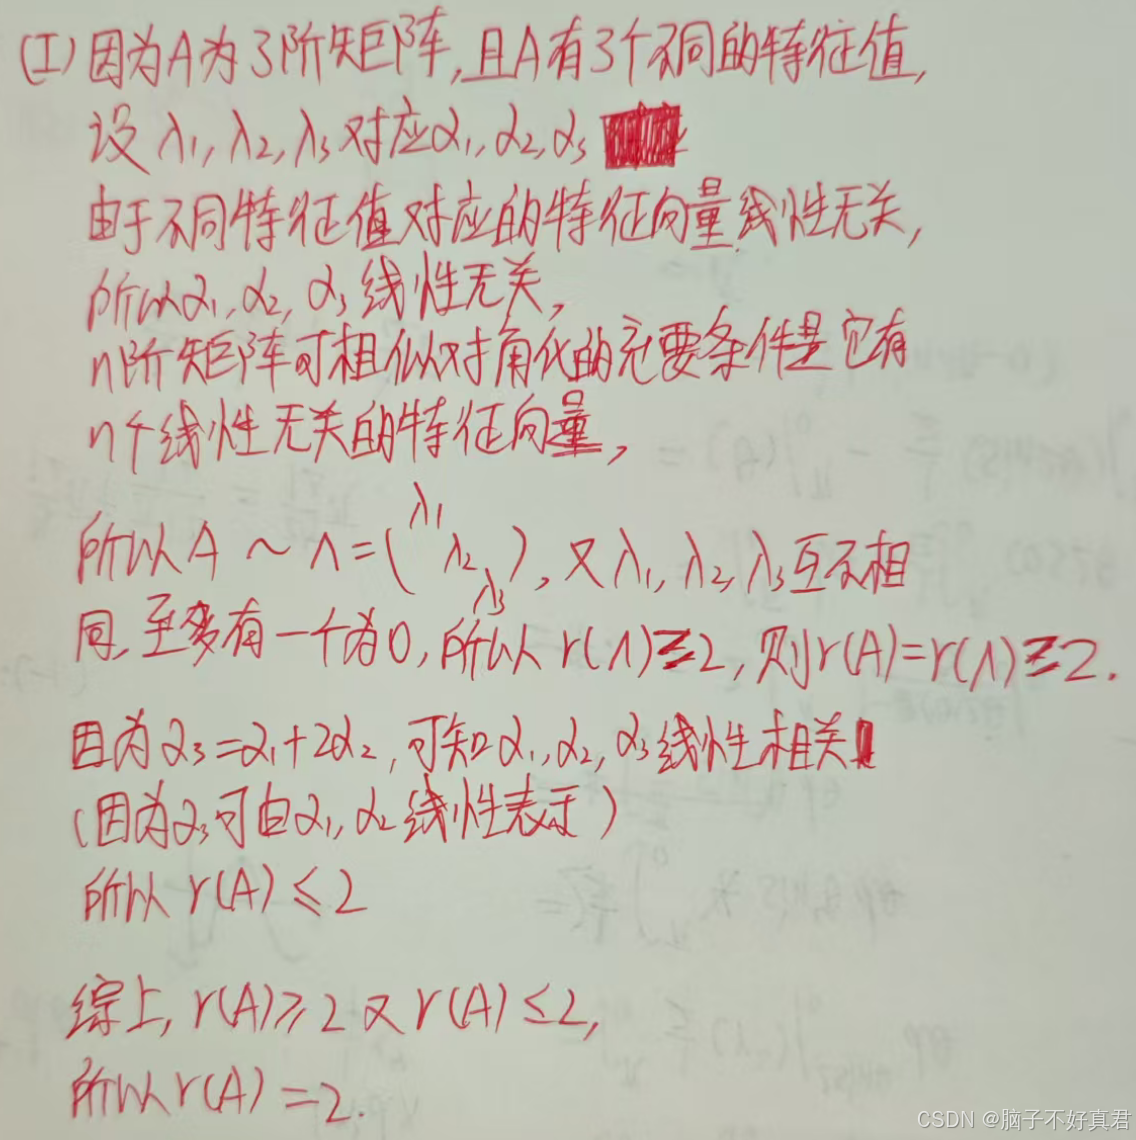 (I) 因为A为3阶矩阵,且A有3个不同的特征值,
设 λ₁, λ₂, λ₃ 对应α₁, α₂, α₃
由于不同特征值对应的特征向量线性无关,
所以α₁, α₂, α₃ 线性无关,
n阶矩阵可相似对角化的充要条件是它有
n个线性无关的特征向量,
所以 A ~ Λ = (λ₁ λ₂ λ₃), 又 λ₁, λ₂, λ₃ 互不相
同, 至多有一个为0, 所以 r(Λ)≥2, 则r(A)=r(Λ)≥2.
因为α₃=α₁+2α₂, 可知α₁, α₂, α₃线性相关
(因为α₃可由α₁, α₂ 线性表示)
所以 r(A) ≤ 2
综上, r(A)≥2 又 r(A)≤2,
所以 r(A) = 2.
CSDN @脑子不好真君